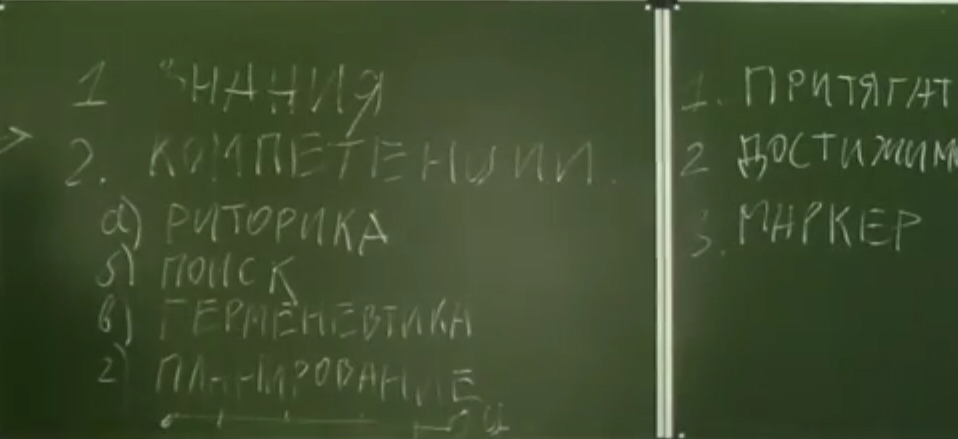 1 ЗНАНИЯ
2. КОМПЕТЕНЦИИ.
а) РИТОРИКА
б) ПОИСК
в) ГЕРМЕНЕВТИКА
г) ПЛАНИРОВАНИЕ
Ц
1. ПРИТЯГАТ
2 ДОСТИЖИМ
3. МАРКЕР